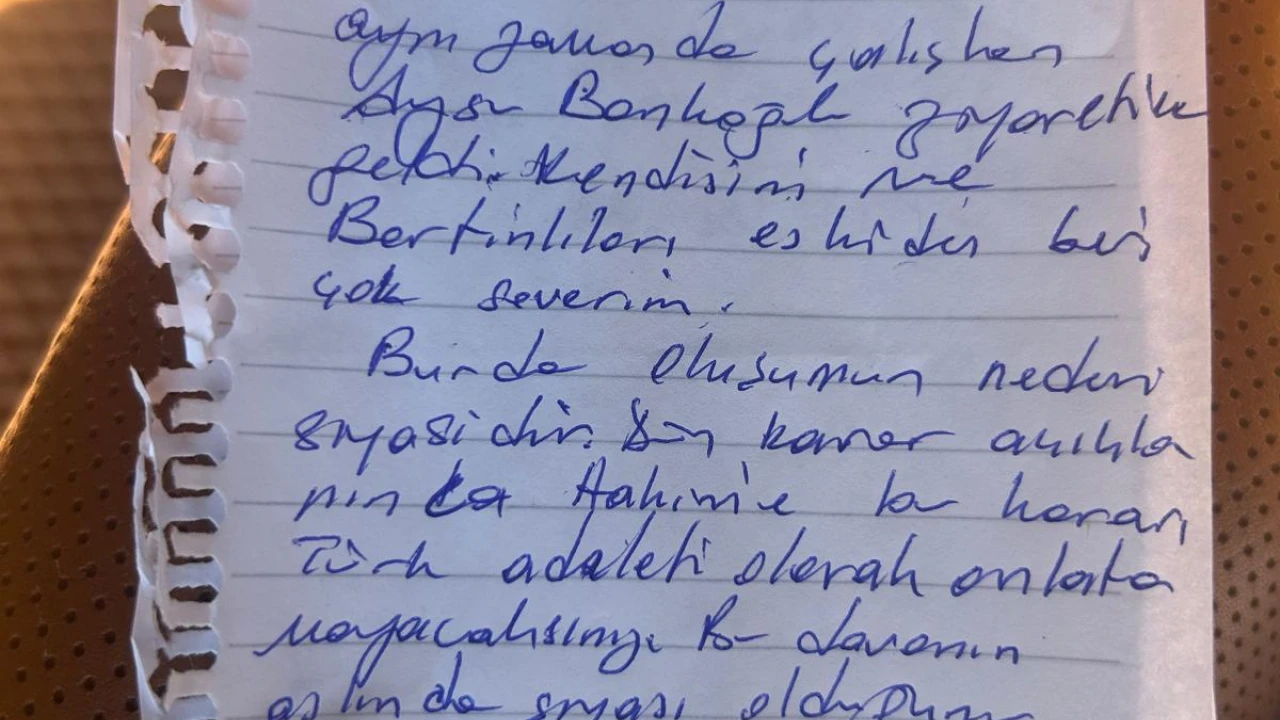 aynı zamanda çalışkan
Aysu Bankoğlu ziyaretime
geldi. Kendisini ve
Bartınlıları eskiden beri
çok severim.
Burda oluşumun nedeni
siyasidir. karar açıkla
nınca Hakime bu kararı
Türk adaleti olarak anlata
mayacaksınız. Bu davanın
aslında siyasi olduğunu